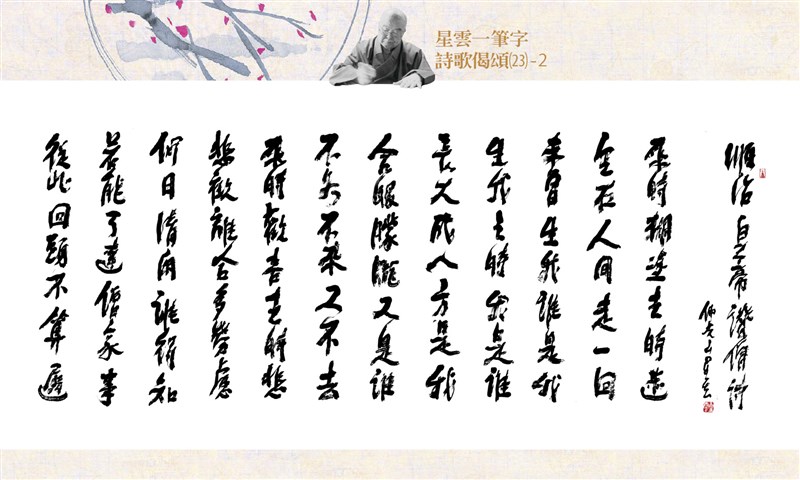 星雲一筆字
詩歌偈頌(23)-2
順治皇帝讚僧詩
佛光山星雲
來時糊塗去時迷
空在人間走一回
未曾生我誰是我
生我之時我是誰
長大成人方是我
合眼朦朧又是誰
不如不來又不去
來時歡喜去時悲
悲歡離合多勞慮
何日清閒誰得知
若能了達僧家事
從此回頭不算遲